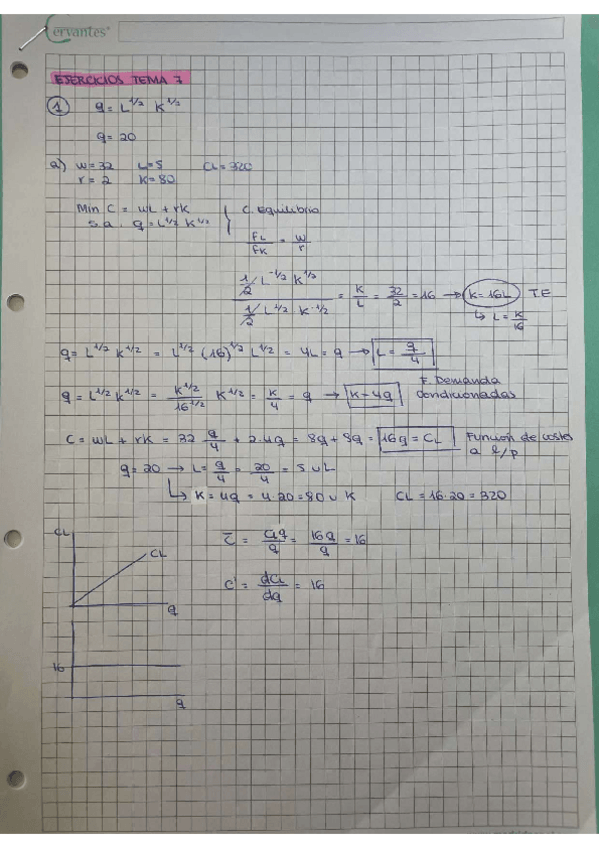 Cervantes
EJERCICIOS TEMA 7
① q = L^1/2 K^1/2
q = 20
a) w = 32 L = 5 CL = 320
r = 2 K = 80
Min C = wL + rK } C. Equilibrio
s.a. q = L^1/2 K^1/2
FL/FK = w/r
(1/2 L^-1/2 K^1/2)/(1/2 L^1/2 K^-1/2) = K/L = 32/2 = 16 → K = 16L TE
↳ L = K/16
q = L^1/2 K^1/2 = L^1/2 (16)^1/2 L^1/2 = 4L = q → L = q/4
q = L^1/2 K^1/2 = K^1/2/16^1/2 K^1/2 = K/4 = q → K = 4q F. Demanda condicionadas
C = wL + rK = 32 q/4 + 2·4q = 8q + 8q = 16q = CL Función de costes a l/p
q = 20 → L = q/4 = 20/4 = 5 u L
↳ K = 4q = 4·20 = 80 u K CL = 16·20 = 320
CL
CL
q
C̄ = CLq/q = 16q/q = 16
C' = dCL/dq = 16
16
q